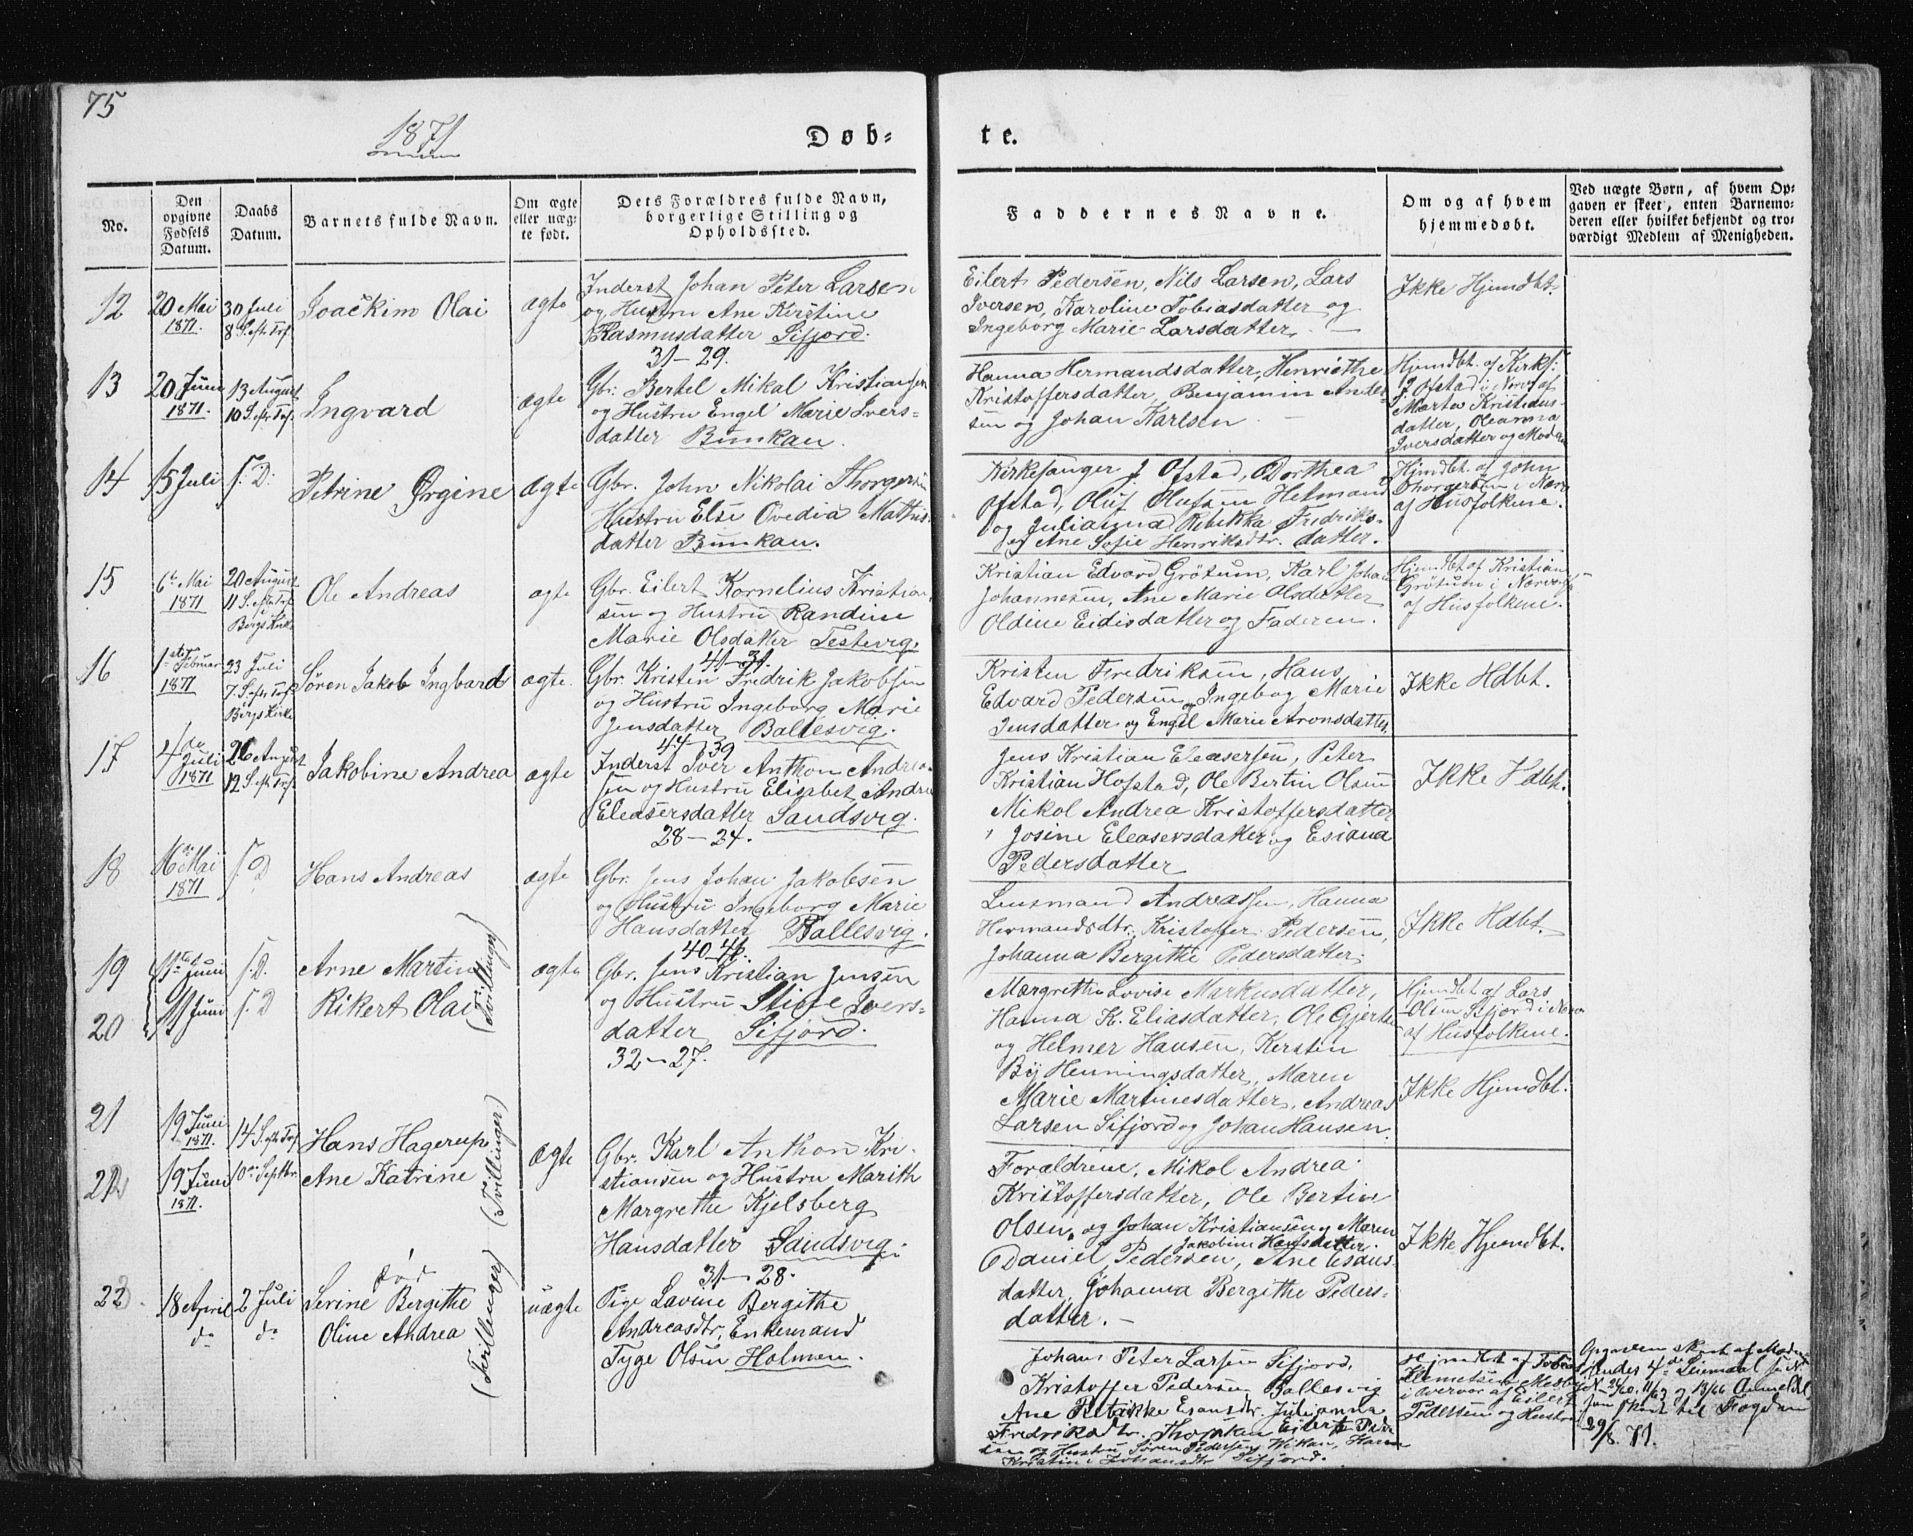 75
1871
Døb-
te.
No.
Den opgivne Fødsels Datum.
Daabs Datum.
Barnets fulde Navn.
Om ægte eller uægte født.
Dets Forældres fulde Navn, borgerlige Stilling og Opholdssted.
Faddernes Navne.
Om og af hvem hjemmedøbt.
Ved uægte Børn, af hvem Opgaven er skeet, enten Barnemoderen eller hvilket bekjendt og troværdigt Medlem af Menigheden.
12
20 Mai 1871.
30 Juli
8 S. eft. Tref
Joackim Olai
ægte
Inderst Johan Peter Larsen
og Hustru Ane Kristine
Rasmusdatter Sifjord.
31-29.
Eilert Pedersen, Nils Larsen, Lars
Iversen, Karoline Tobiasdatter og
Ingeborg Marie Larsdatter
Ikke Hjemdbt.
13
20 Juni 1871.
13 August
10 S. eft. Tref
Ingvard
ægte
Gbr. Bertel Mikal Kristiansen
og Hustru Engel Marie Ivers-
datter Bunkan.
Hanna Hermandsdatter, Henriethe
Kristoffersdatter, Benjamin Ander-
sen og Johan Karlsen
Hjemdbt. af Kirks.
J. Ofstad i Nærv. af
Marta Kristens-
datter, Oleanna
Iversdatter og Moderen
14
15 Juli
s. D.
Petrine Ørgine
ægte
Gbr. John Nikolai Thorgersen
Hustru Else Ovedia Mathis-
datter Bunkan.
Kirkesanger J. Ofstad, Dorthea
Ofstad, Oluf Olufsen Helmand
og Julianna Rebekka Fredriks-
og Ane Sofie Henriksdtr. datter.
Hjemdbt. af John
Thorgersen i Nærv.
af Husfolkene.
15
6te Mai 1871
20 August
11 S. eft. Tref
i
Bergs Kirke
Ole Andreas
ægte
Gbr. Eilert Kornelius Kristian-
sen og Hustru Randine
Marie Olsdatter Testevig.
41-31.
Kristian Edvard Grötum, Karl Johan
Johannesen, Ane Marie Olsdatter
Oldine Eidisdatter og Faderen.
Hjemdbt af Kristian
Grötum i Nærværelse
af Husfolkene.
16
1ste Februar 1871
23 Juli
7 S. eft. Tref
Bergs Kirke
Søren Jakob Ingbard
ægte.
Gbr. Kristen Fredrik Jakobsen
og Hustru Ingeborg Marie
Jensdatter Ballesvig.
44-39
Kristen Fredriksen, Hans
Edvard Pedersen, Ingebog Marie
Jensdatter og Engel Marie Aronsdatter.
Ikke Hdbt.
17
4de Juli 1871
26 August
12 S. eft. Tref
Jakobine Andrea
ægte
Inderst Iver Anthon Andrea-
sen og Hustru Elisabet Andrea
Eleasersdatter Sandsvig.
28-24.
Jens Kristian Eleasersen, Peter
Kristian Hofstad, Ole Bertin Olsen
Mikol Andrea Kristoffersdatter
Josine Eleasersdatter og Esiana
Pedersdatter
Ikke Hdbt.
18
16 Mai 1871
s. D
Hans Andreas
ægte
Gbr. Jens Johan Jakobsen
og Hustru Ingeborg Marie
Hansdatter Ballesvig.
40-41.
Lensmand Andreassen, Hanna
Hermandsdtr. Kristoffer Pedersen,
Johanna Bergithe Pedersdatter.
Ikke Hdbt.
19
11te Juni
s. D.
Arne Martin
ægte
20
11 Juni
s. D
Rikert Olai
(Tvillinger)
Gbr. Jens Kristian Jensen
og Hustru Stine Ivers-
datter Sifjord.
32-27.
Margrethe Lovise Markusdatter,
Hanna K. Eliasdatter, Ole Gjertsen
og Helmer Hansen, Kirsten
By Henningsdatter, Maren
Marie Martinesdatter, Andreas
Larsen Sifjord og Johan Hansen.
Hjemdbt. af Lars
Olsen Sifjord i Nærv.
af Husfolkene.
Ikke Hjemdbt.
21
19 Juni 1871.
14 S. eft. Tref
Hans Hagerup
ægte
22
19 Juni 1871.
10de Septbr.
Ane Katrine
(Tvillinger)
Gbr. Karl Anthon Kri-
stiansen og Hustru Marith
Margrethe Kjelsberg
Hansdatter Sandsvig.
31-28.
Forældrene, Mikol Andrea
Kristoffersdatter, Ole Bertin
Olsen, og Johan Kristiansen, Maren
Jakobine Hansdatter.
Daniel Pedersen, Ane Esaus-
datter, Johanna Bergithe Peders-
datter.
Ikke Hjemdbt.
23.
18 April
do
2 Juli
do
Serine Bergithe
Oline Andrea
(Tvillinger)
uægte
Pige Lavine Bergithe
Andreasdtr, Enkemand
Tyge Olsen Holmen.
Johan Peter Larsen Sifjord,
Kristoffer Pedersen Ballesvig
Ane Rebikke Esausdtr. Julianna
Fredriksdtr. Eilert Peder
sen og Hustru Søren Pedersen Vikan, Hanna
Kristine Johansdtr Sifjord.
Hjemdbt af Tobias
Klemetsen
i Overvær af Eilert
Pedersen og Hustru
Opgaven skeet af Moder-
29/8. 71.